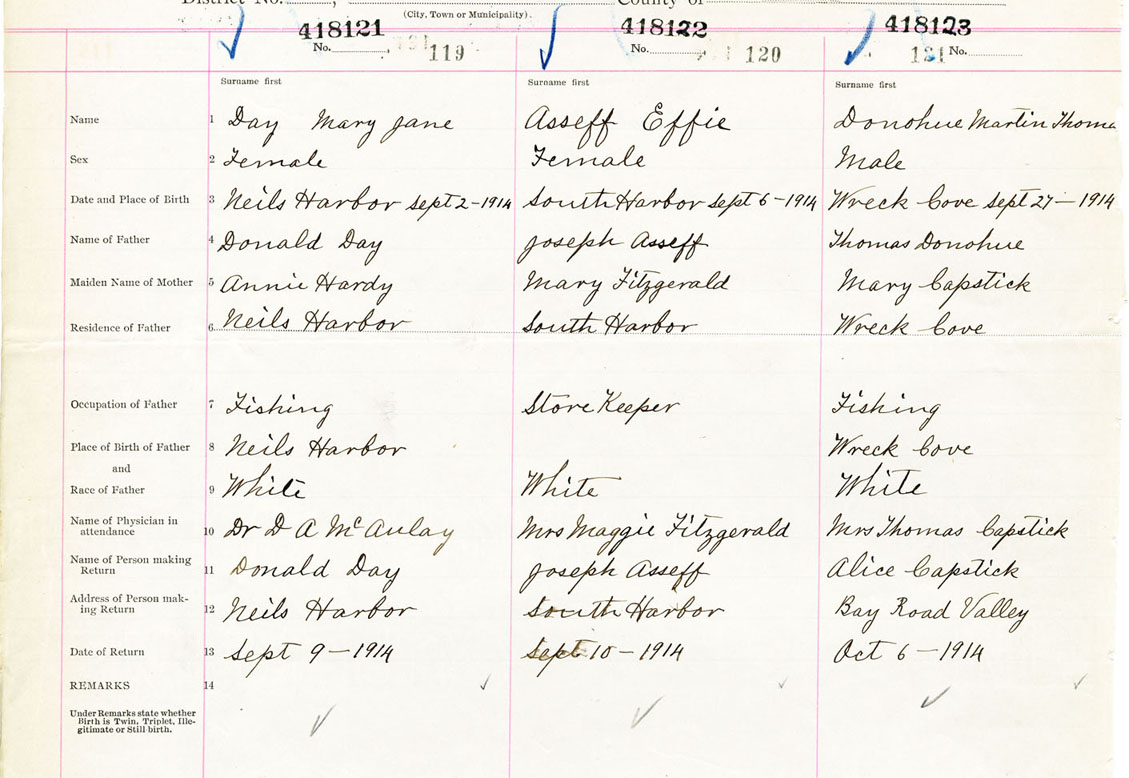 District No. , County of
(City, Town or Municipality).
418121 418122 418123
No. 119 No. 120 121 No.
Surname first Surname first Surname first
Name 1 Day Mary Jane Asseff Effie Donohue Martin Thoma
Sex 2 Female Female Male
Date and Place of Birth 3 Neils Harbor Sept 2-1914 South Harbor Sept 6-1914 Wreck Cove Sept 27-1914
Name of Father 4 Donald Day Joseph Asseff Thomas Donohue
Maiden Name of Mother 5 Annie Hardy Mary Fitzgerald Mary Capstick
Residence of Father 6 Neils Harbor South Harbor Wreck Cove
Occupation of Father 7 Fishing Store Keeper Fishing
Place of Birth of Father 8 Neils Harbor Wreck Cove
and
Race of Father 9 White White White
Name of Physician in
attendance 10 Dr D A McAulay Mrs Maggie Fitzgerald Mrs Thomas Capstick
Name of Person making
Return 11 Donald Day Joseph Asseff Alice Capstick
Address of Person mak-
ing Return 12 Neils Harbor South Harbor Bay Road Valley
Date of Return 13 Sept 9-1914 Sept 10-1914 Oct 6-1914
REMARKS 14
Under Remarks state whether
Birth is Twin, Triplet, Ille-
gitimate or Still birth.